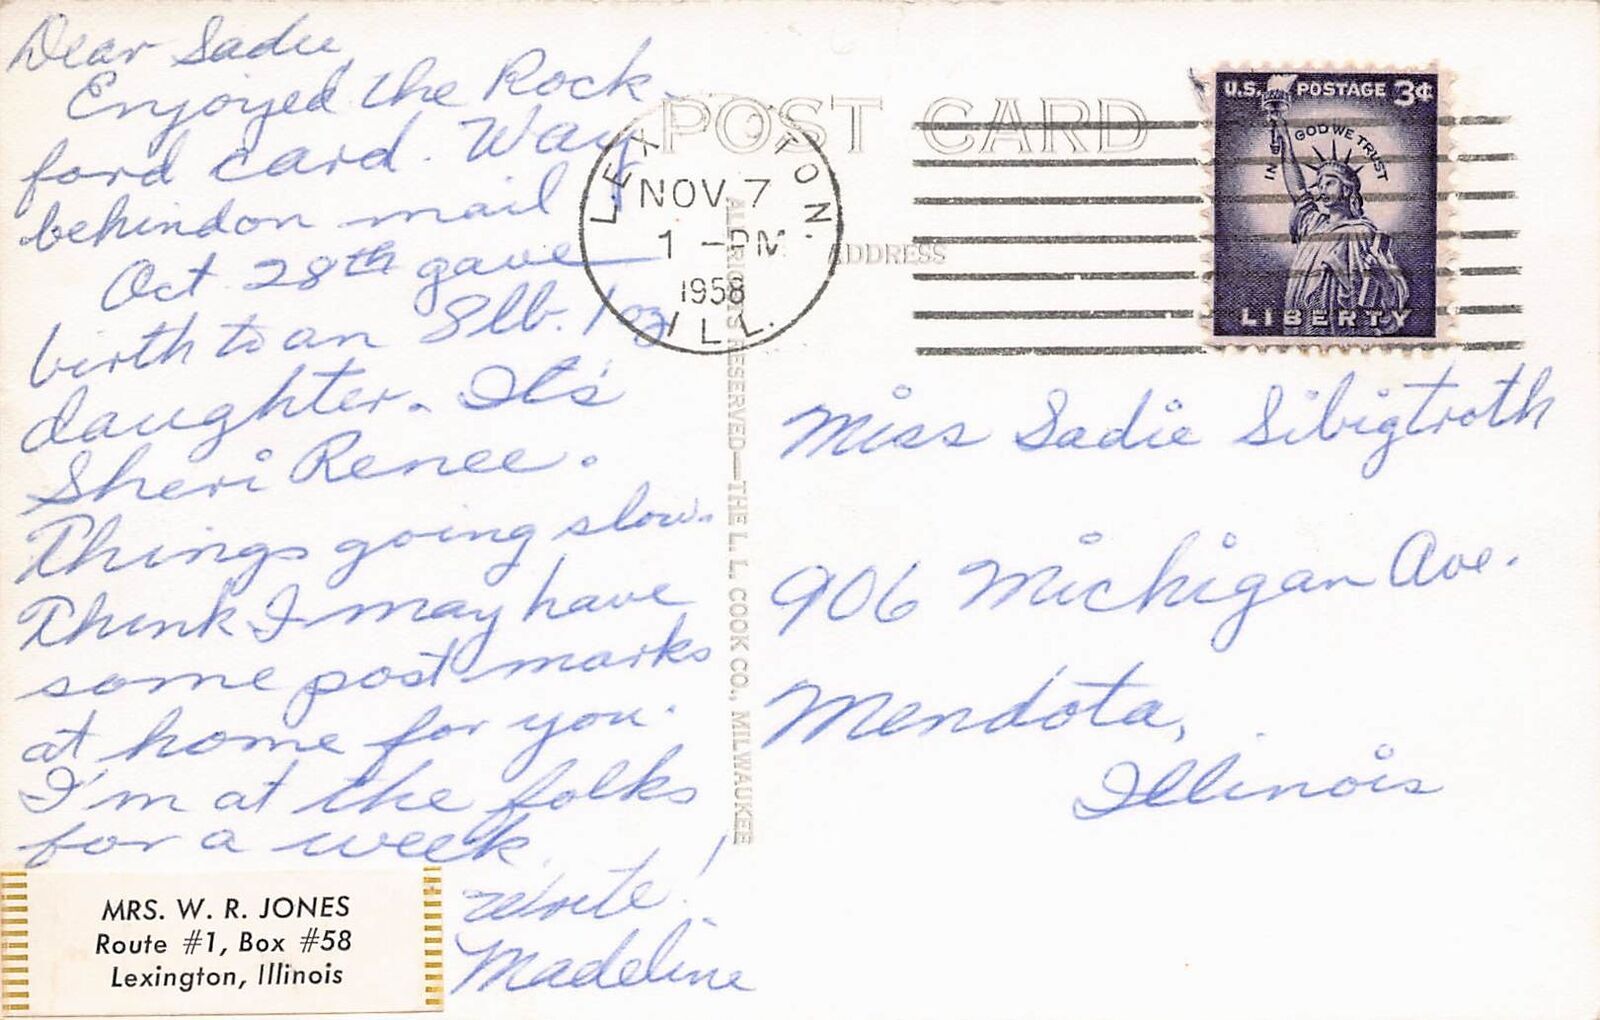 Dear Sadie
Enjoyed the Rock-
ford card. Way
behind on mail
Oct 28th gave
birth to an 8 lb. 1 oz
daughter. It's
Sheri Renee.
Things going slow.
Think I may have
some post marks
at home for you.
I'm at the folks
for a week.
Write!
Madeline
MRS. W. R. JONES
Route #1, Box #58
Lexington, Illinois
POST CARD
ADDRESS
ALL RIGHTS RESERVED—THE L. L. COOK CO., MILWAUKEE
LEXINGTON.
NOV 7
1 - PM
1958
ILL.
U.S. POSTAGE 3¢
IN GOD WE TRUST
LIBERTY
Miss Sadie Sibigtroth
906 Michigan Ave.
Mendota,
Illinois